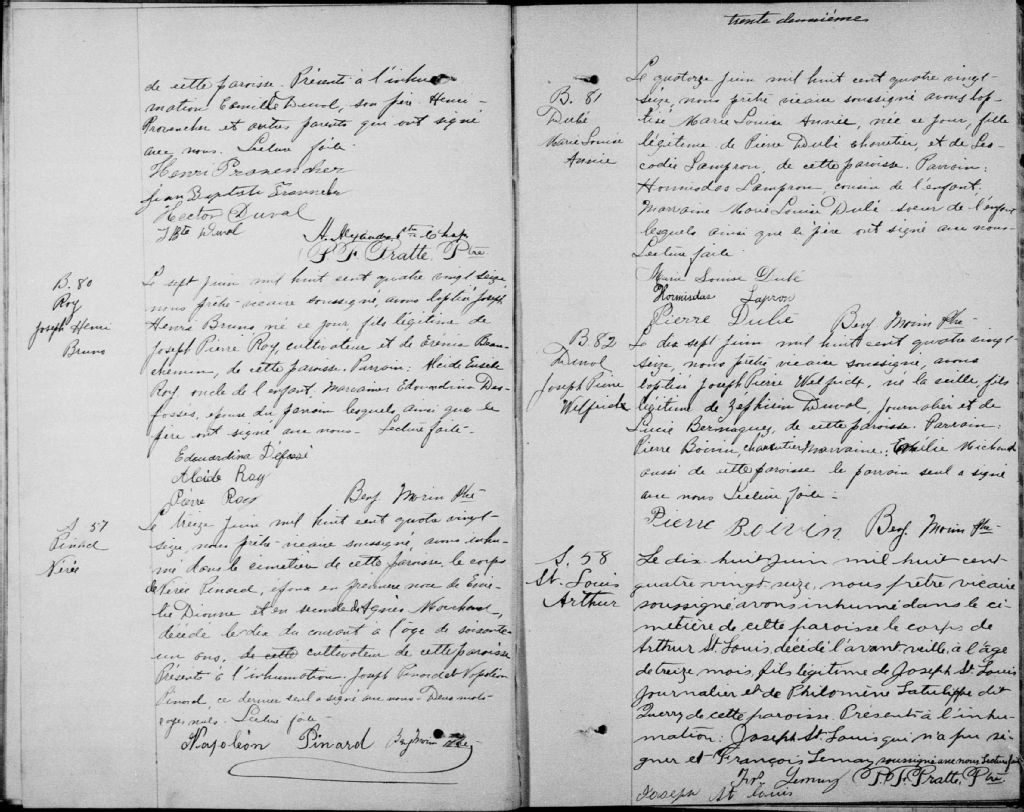 de cette paroisse. Présents à l'inhu-
mation Camille Duval, son père Henri
Provencher et autres parents qui ont signé
avec nous. Lecture faite
Henri Provencher
Jean Baptiste
Hector Duval
J Bte Duval
P. F. Pratte, Ptre
B. 80
Roy
Joseph Henri
Bruno
Le sept juin mil huit cent quatre vingt seize,
nous prêtre vicaire soussigné, avons baptisé Joseph
Henri Bruno né ce jour, fils légitime de
Joseph Pierre Roy, cultivateur et de Exénia Beau-
chemin, de cette paroisse. Parrain: Alcide Eusèbe
Roy oncle de l'enfant, Marraine: Edouardina Des-
fossés, épouse du parrain lesquels ainsi que le
père ont signé avec nous. Lecture faite.
Edouardina Défossé
Alcide Roy
Pierre Roy Benj. Morin Ptre
S. 57
Pinard
Nérée
Le treize juin mil huit cent quatre vingt-
seize, nous prêtre vicaire soussigné, avons inhu-
mé dans le cimetière de cette paroisse, le corps
de Nérée Pinard, époux en première noce de Emi-
lie Dionne et en seconde de Agnès Marchand,
décédé le dix du courant à l'âge de soixante-
un ans, de cette cultivateur de cette paroisse
Présents à l'inhumation: Joseph Pinard et Napoléon
Pinard, ce dernier seul a signé avec nous. Deux mots
rayés nuls. Lecture faite.
Napoléon Pinard Benj Morin Ptre
trente deuxième
B. 81
Dubé
Marie Louise
Année
Le quatorze juin mil huit cent quatre vingt-
seize, nous prêtre vicaire soussigné avons bap-
tisé Marie Louise Année, née ce jour, fille
légitime de Pierre Dubé charretier, et de Léo-
cadie Lampron, de cette paroisse. Parrain:
Hormisdas Lampron, cousin de l'enfant,
Marraine Marie Louise Dubé soeur de l'enfant
lesquels ainsi que le père ont signé avec nous.
Lecture faite
Marie Louise Dubé
Hormisdas Lapron
Pierre Dubé Benj Morin Ptre
B. 82
Duval
Joseph Pierre
Welfride
Le dix sept juin mil huit cent quatre vingt
seize, nous prêtre vicaire soussigné, avons
baptisé Joseph Pierre Welfride, né la veille, fils
légitime de Zéphirin Duval, journalier et de
Lucie Bermaquez, de cette paroisse. Parrain:
Pierre Boivin, charretier, Marraine: Emilie Michaud
aussi de cette paroisse le parrain seul a signé
avec nous Lecture faite.
Pierre Boivin Benj. Morin Ptre
S. 58
St. Louis
Arthur
Le dix huit juin mil huit cent
quatre vingt seize, nous prêtre vicaire
soussigné avons inhumé dans le ci-
metière de cette paroisse le corps de
Arthur St. Louis, décédé l'avant veille, à l'âge
de treize mois, fils légitime de Joseph St. Louis
journalier et de Philomène Latulippe dit
Querry de cette paroisse. Présents à l'inhu-
mation: Joseph St. Louis qui n'a pu si-
gner et François Lemay soussigné avec nous. Lecture faite
Frs Lemay P. F. Pratte, Ptre
Joseph St Louis